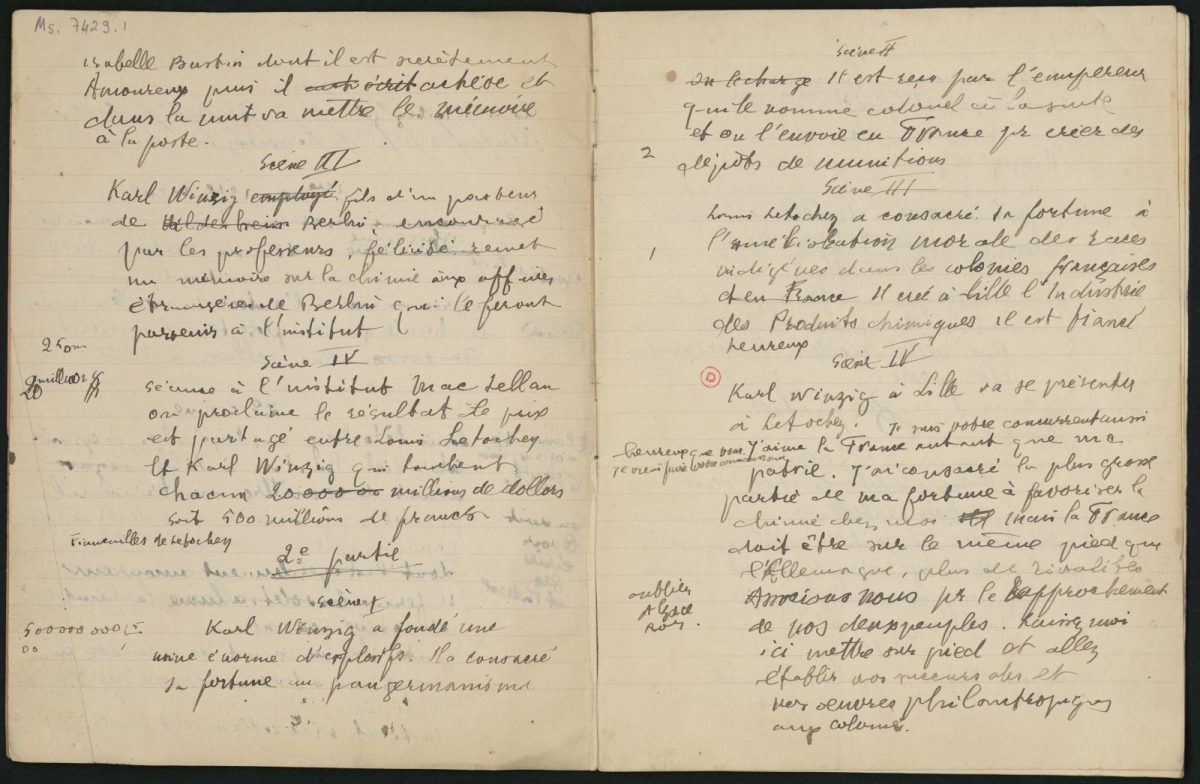 Ms. 7429.1
Isabelle Bastin dont il est secrètement
Amoureux puis il achève et
dans la nuit va mettre le mémoire
à la poste.
Scène III
Karl Winzig employé fils d'un pasteur
de Berlin, encouragé
par les professeurs, félicité remet
un mémoire sur la chimie aux affaires
étrangères de Berlin qui le feront
parvenir à l'institut
25 ans
Scène IV
20 millions
Séance à l'institut Mac Lellan
on proclame le résultat le prix
est partagé entre Louis Letochey
et Karl Winzig qui touchent
chacun millions de dollars
soit 500 millions de francs
Fiancailles de Letochey
2e partie
scène I
500 000 000
Karl Winzig a fondé une
usine énorme d'explosifs. Il a consacré
sa fortune au pangermanisme
Scène II
Il est reçu par l'empereur
qui le nomme colonel à la suite
et on l'envoie en France pr créer des
2
dépôts de munitions
Scène III
Louis Letochey a consacré sa fortune à
1
l'amélioration morale des races
indigènes dans les colonies françaises
et en France Il crée à Lille l'Industrie
des Produits chimiques il est fiancé
heureux
Scène IV
D
Karl Winzig à Lille va se présenter
à Letochey. Je suis votre concurrent aussi
heureux que vous. J'aime la France autant que ma
je viens faire votre connaissance
patrie. J'ai consacré la plus grosse
partie de ma fortune à favoriser la
chimie chez nous mais la France
doit être sur le même pied que
l'Allemagne, plus de rivalités
oublier
Alsace
Associons nous pr le Rapprochement
de nos deux peuples. Laissez moi
ici mettre sur pied et allez
établir vos succursales et
vos œuvres philantropiques
aux colonies.